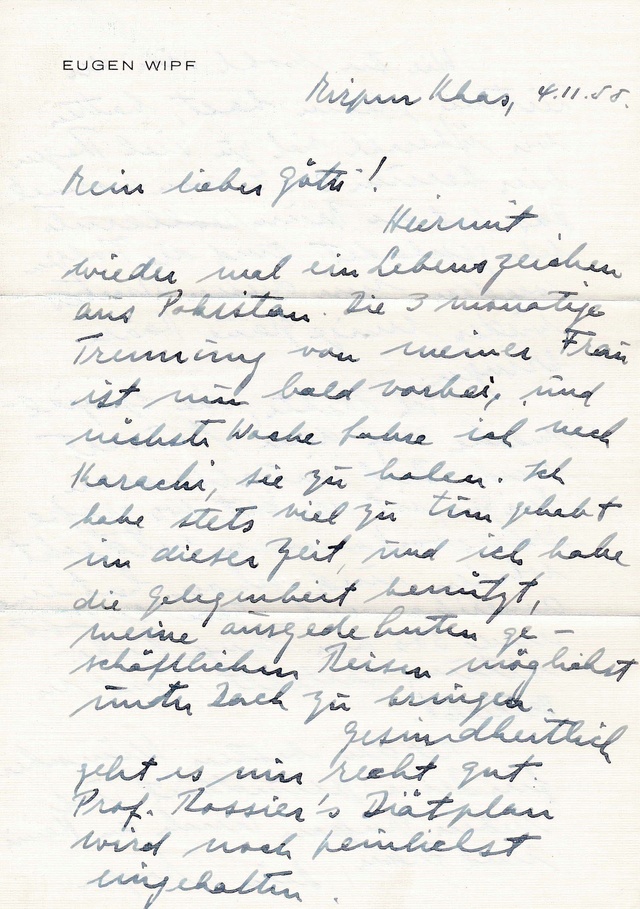 EUGEN WIPF
Mirpur Khas, 4.11.58.
Mein lieber Götti!
Hiermit
wieder mal ein Lebenszeichen
aus Pakistan. Die 3 monatige
Trennung von meiner Frau
ist nun bald vorbei, und
nächste Woche fahre ich nach
Karachi, sie zu holen. Ich
habe stets viel zu tun gehabt
in dieser Zeit, und ich habe
die Gelegenheit benützt,
meine ausgedehnten ge-
schäftlichen Reisen möglichst
unter Dach zu bringen.
Gesundheitlich
geht es mir recht gut.
Prof. Rossier's Diätplan
wird noch peinlichst
eingehalten.